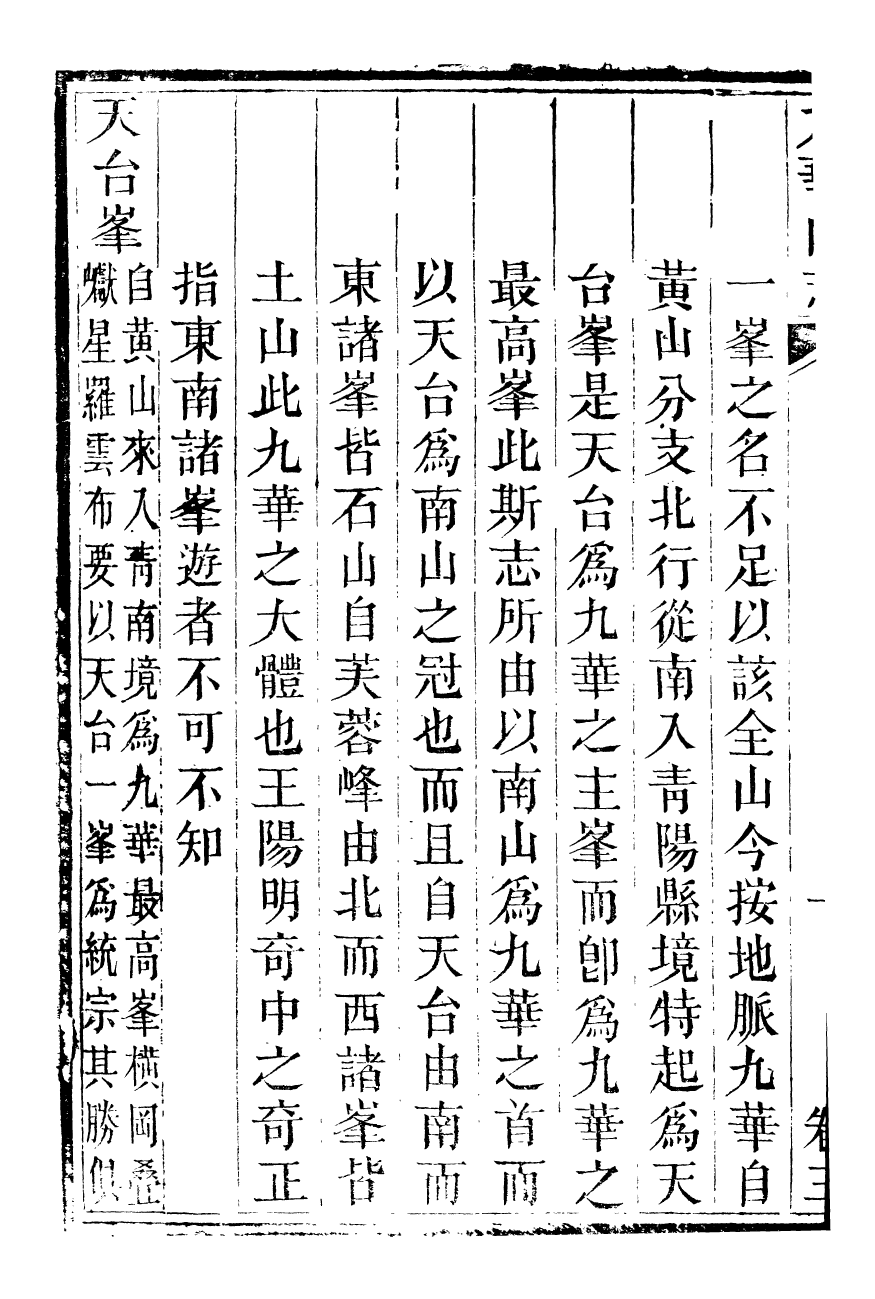 一峯之名不足以該全山今按地脈九華自
黃山分支北行從南入靑陽縣境特起爲天
台峯是天台爲九華之主峯而卽爲九華之
最高峯此斯志所由以南山爲九華之首而
以天台爲南山之冠也而且自天台由南而
東諸峯皆石山自芙蓉峰由北而西諸峯皆
土山此九華之大體也王陽明奇中之奇正
指東南諸峯遊者不可不知
天台峯
自黃山來入靑南境爲九華最高峯橫岡疊
巘星羅雲布要以天台一峯爲統宗其勝俱
一
卷三